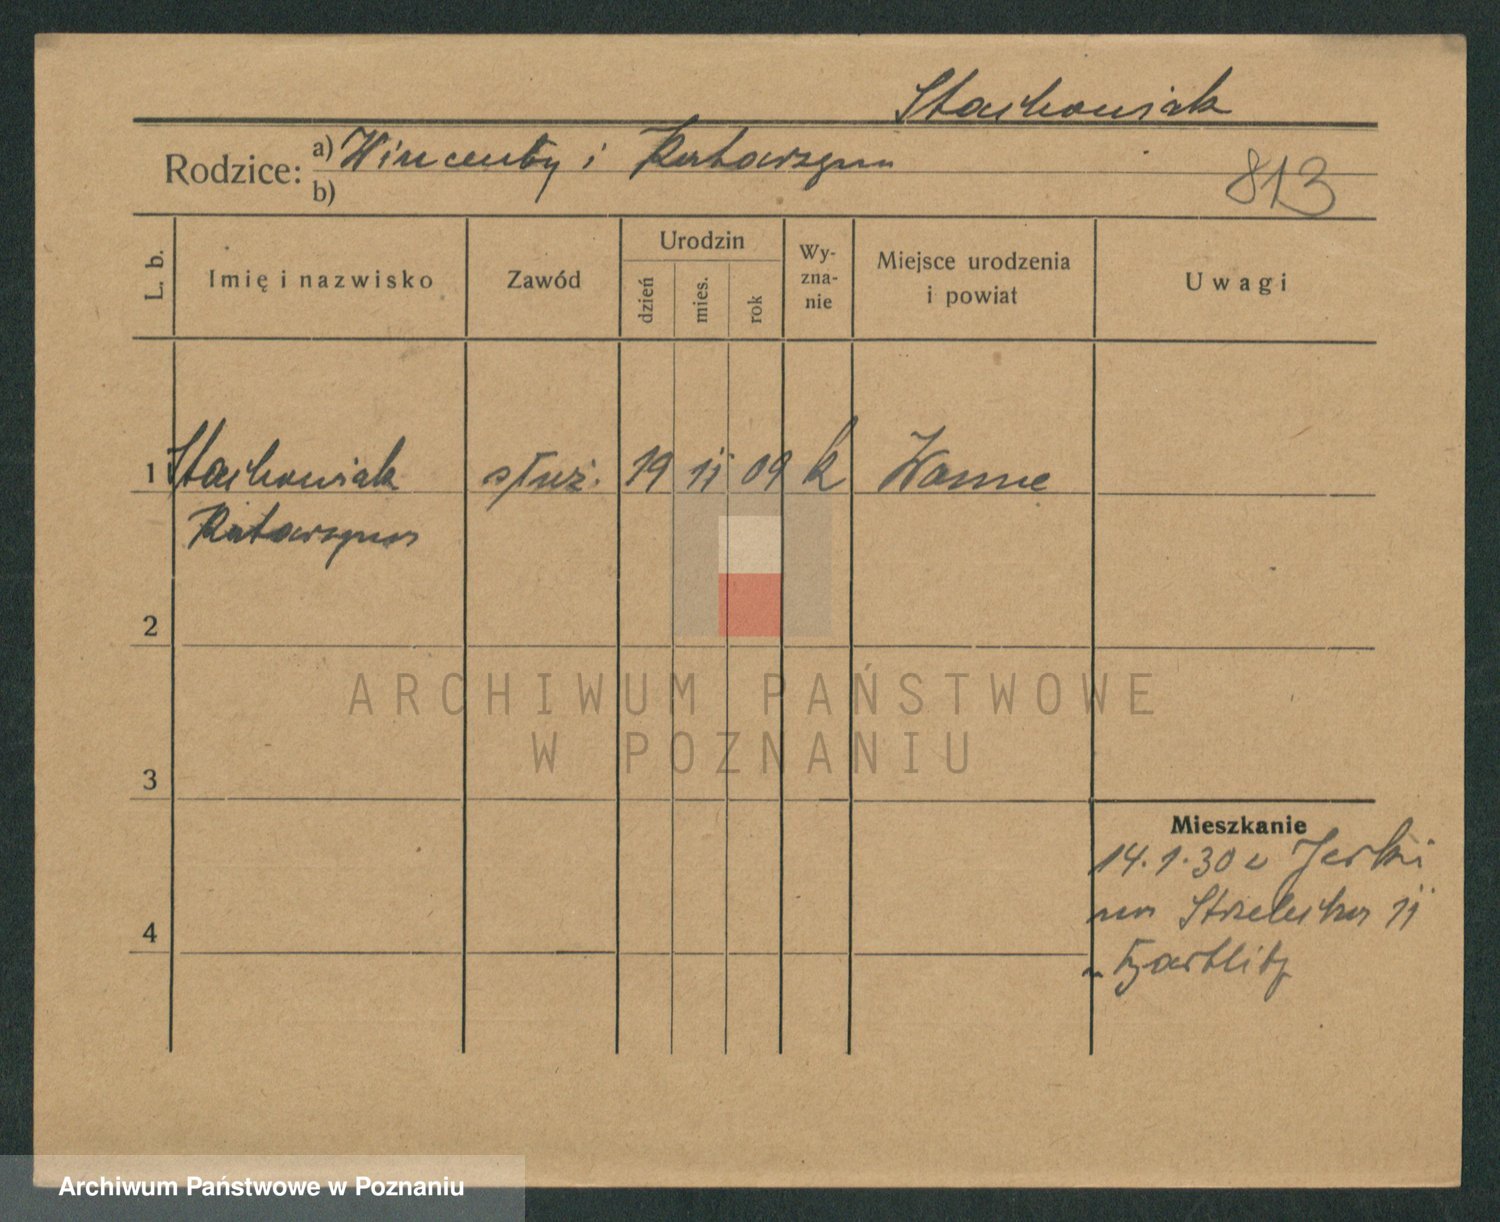 Stachowiak
Rodzice: a) Wincenty i Katarzyna
b)
813
L. b.
Imię i nazwisko
Zawód
Urodzin
dzień
mies.
rok
Wy-
zna-
nie
Miejsce urodzenia
i powiat
Uwagi
1 Stachowiak służ. 19 11 09 k Wanne
Katarzyna
2
3
4
Mieszkanie
14.1.30 z Jerki
na Strzelecka 11
ARCHIWUM PAŃSTWOWE
W POZNANIU
Archiwum Państwowe w Poznaniu